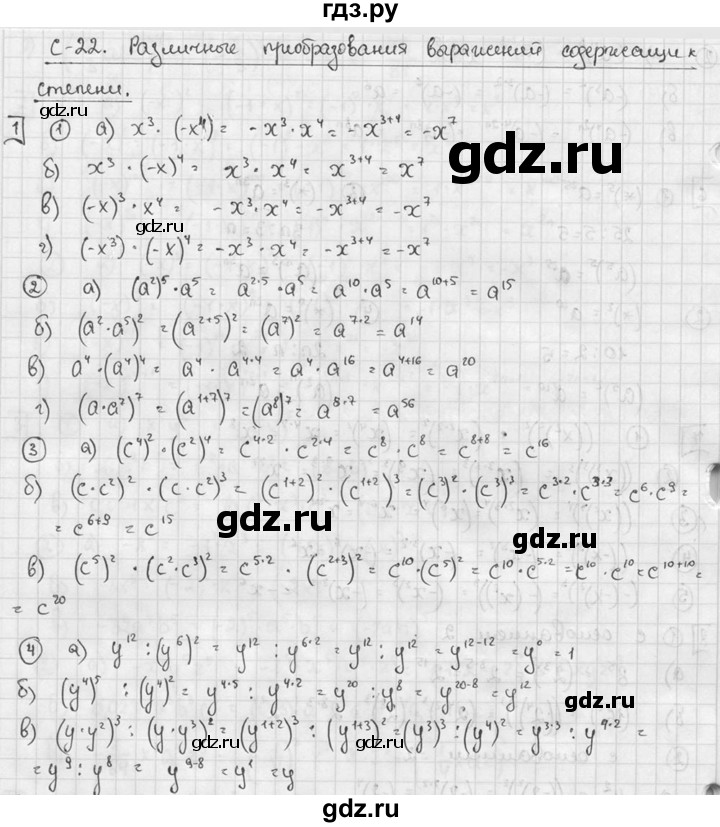 гдз.ру
С-22. Различные преобразования выражений содержащих
степени.
gdz.ru
1 ① а) x³ · (-x⁴) = -x³ · x⁴ = -x³⁺⁴ = -x⁷
gdz.ru
б) x³ · (-x)⁴ = x³ · x⁴ = x³⁺⁴ = x⁷
в) (-x)³ · x⁴ = -x³ · x⁴ = -x³⁺⁴ = -x⁷
г) (-x³) · (-x)⁴ = -x³ · x⁴ = -x³⁺⁴ = -x⁷
gdz.ru
② а) (a²)⁵ · a⁵ = a²·⁵ · a⁵ = a¹⁰ · a⁵ = a¹⁰⁺⁵ = a¹⁵
б) (a² · a⁵)² = (a²⁺⁵)² = (a⁷)² = a⁷·² = a¹⁴
в) a⁴ · (a⁴)⁴ = a⁴ · a⁴·⁴ = a⁴ · a¹⁶ = a⁴⁺¹⁶ = a²⁰
г) (a · a⁷)⁷ = (a¹⁺⁷)⁷ = (a⁸)⁷ = a⁸·⁷ = a⁵⁶
gdz.ru
③ а) (c⁴)² · (c²)⁴ = c⁴·² · c²·⁴ = c⁸ · c⁸ = c⁸⁺⁸ = c¹⁶
б) (c · c²)² · (c · c²)³ = (c¹⁺²)² · (c¹⁺²)³ = (c³)² · (c³)³ = c³·² · c³·³ = c⁶ · c⁹ =
= c⁶⁺⁹ = c¹⁵
gdz.ru
gdz.ru
в) (c⁵)² · (c² · c³)² = c⁵·² · (c²⁺³)² = c¹⁰ · (c⁵)² = c¹⁰ · c⁵·² = c¹⁰ · c¹⁰ = c¹⁰⁺¹⁰ =
= c²⁰
gdz.ru
④ а) y¹² : (y⁶)² = y¹² : y⁶·² = y¹² : y¹² = y¹²⁻¹² = y⁰ = 1
б) (y⁴)⁵ : (y⁴)² = y⁴·⁵ : y⁴·² = y²⁰ : y⁸ = y²⁰⁻⁸ = y¹²
gdz.ru
в) (y · y²)³ : (y · y³)² = (y¹⁺²)³ : (y¹⁺³)² = (y³)³ : (y⁴)² = y³·³ : y⁴·² =
gdz.ru
= y⁹ : y⁸ = y⁹⁻⁸ = y¹ = y
gdz.ru
gdz.ru